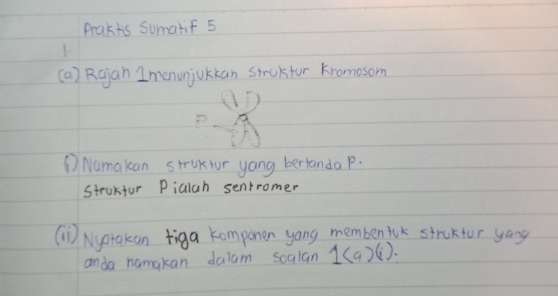 Praktis Sumatif 5
1.
(a) Rajah 1 menunjukkan struktur kromosom
P
(i) Namakan struktur yang bertanda P.
Struktur P ialah sentromer
(ii) Nyatakan tiga komponen yang membentuk struktur yang
anda namakan dalam soalan 1(a)(i).